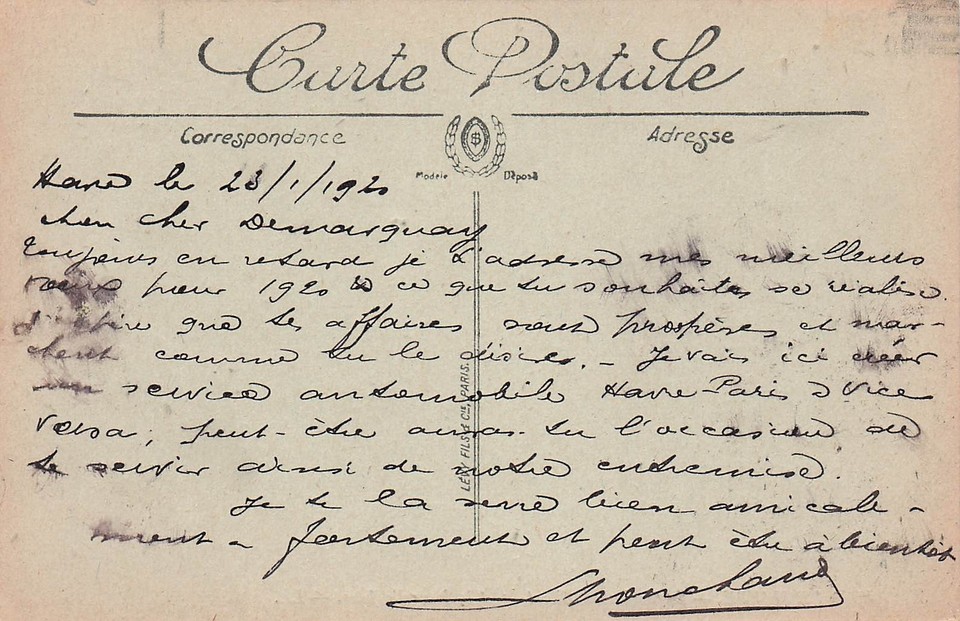 Carte Postale
Correspondance
Adresse
Modèle Déposé
Havre le 23/1/1920
Mon cher Demarquay
Toujours en retard je t'adresse mes meilleurs
vœux pour 1920 à ce que tu souhaites se réalise.
J'espère que tes affaires sont prospères et mar-
chent comme tu le désires. - Je vais ici créer
un service automobile Havre-Paris & vice
versa; peut-être auras-tu l'occasion de
te servir ainsi de notre entremise.
Je te la serre bien amicale-
ment - fortement et peut être à bientôt
LÉVY FILS & Cie, PARIS.